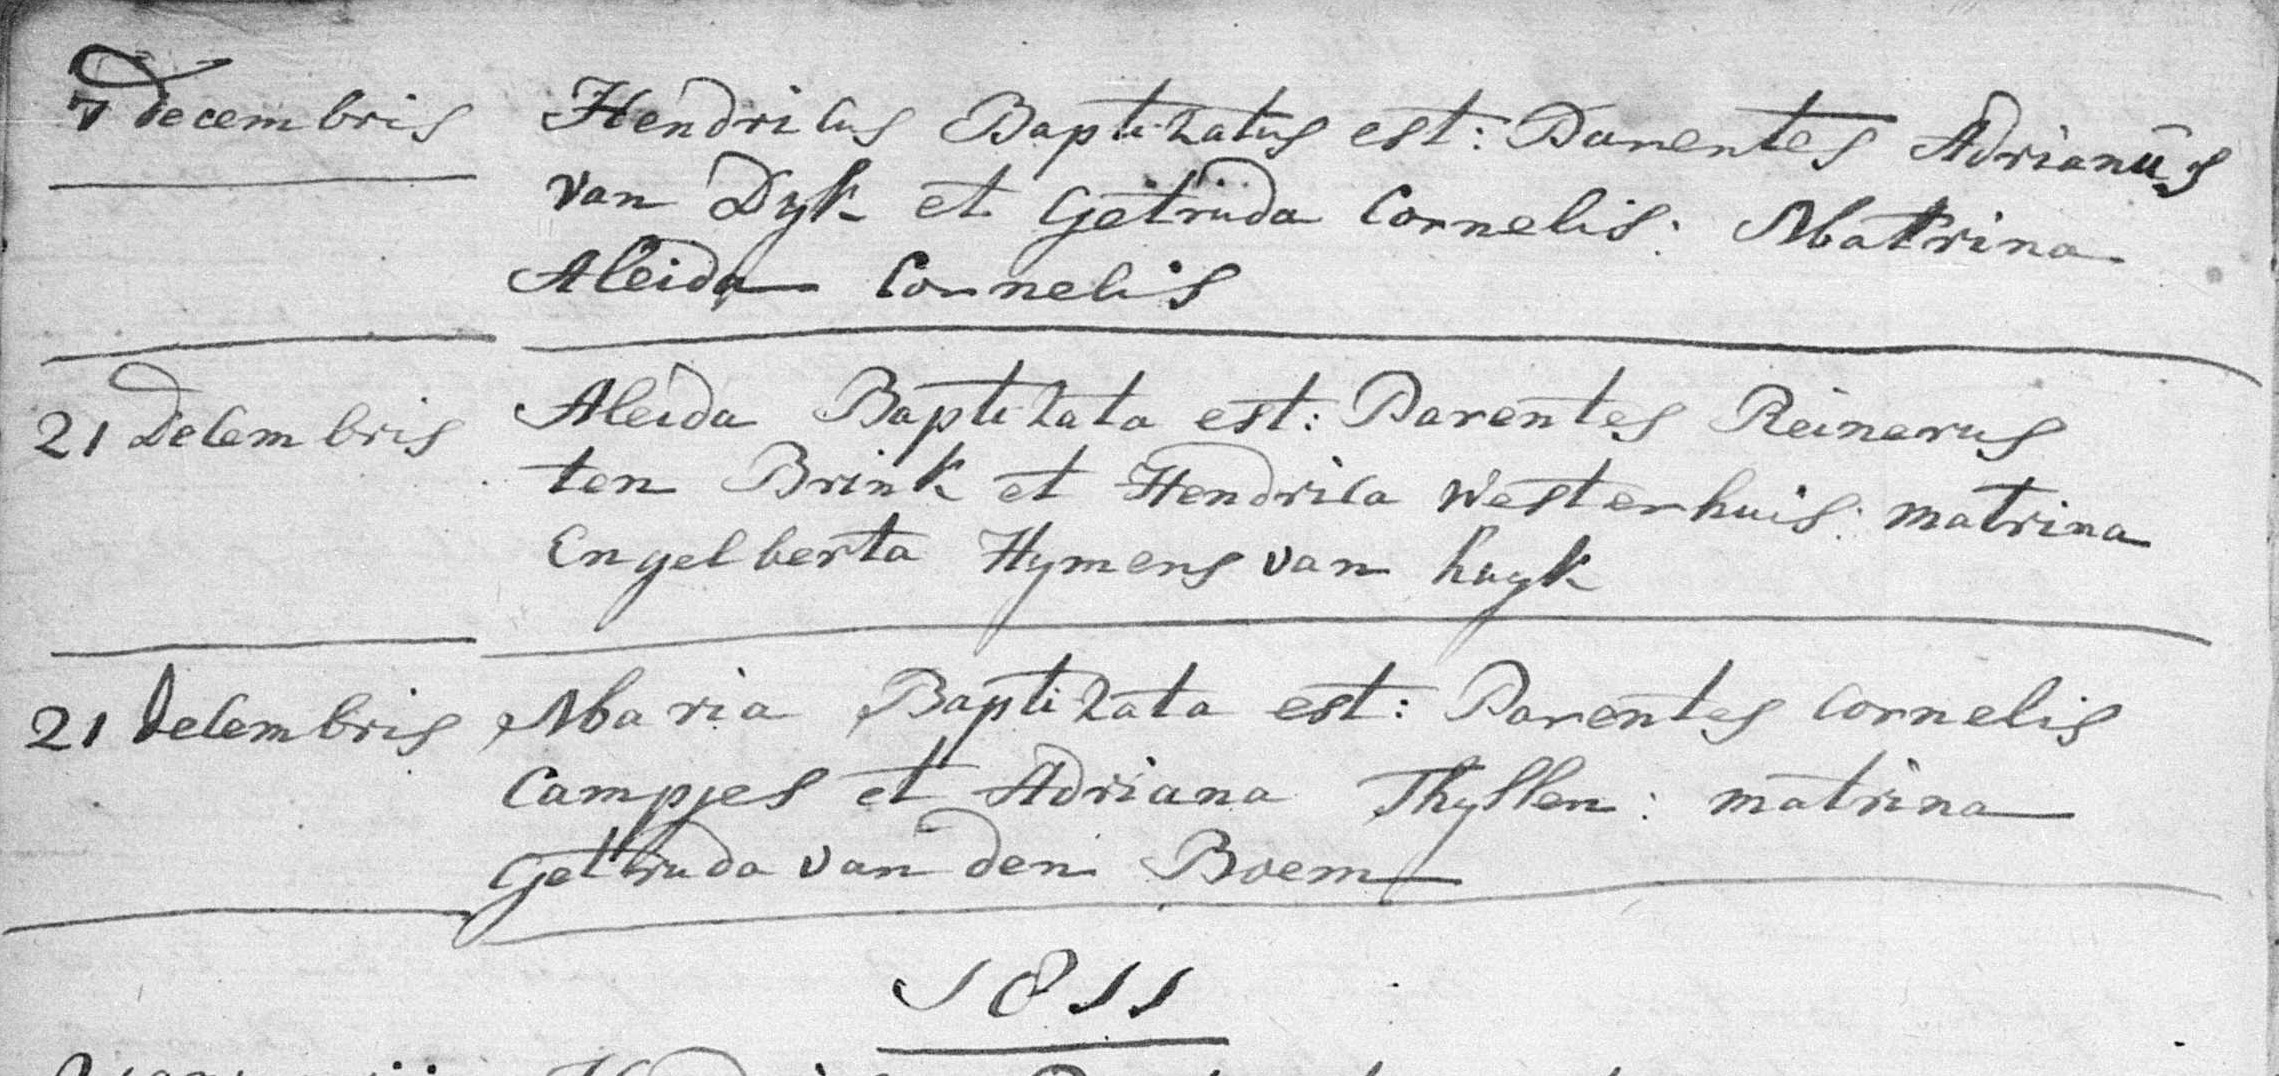 7 Decembris Hendricus Baptizatus est: Parentes Adrianus
van Dyk et Getruda Cornelis: Matrina
Aleida Cornelis
21 Decembris Aleida Baptizata est: Parentes Reinerus
ten Brink et Hendrica Westerhuis: matrina
Engelberta Hymens van
21 Decembris Maria Baptizata est: Parentes Cornelis
Campjes et Adriana Thyssen: matrina
Getruda van den Boem
1811